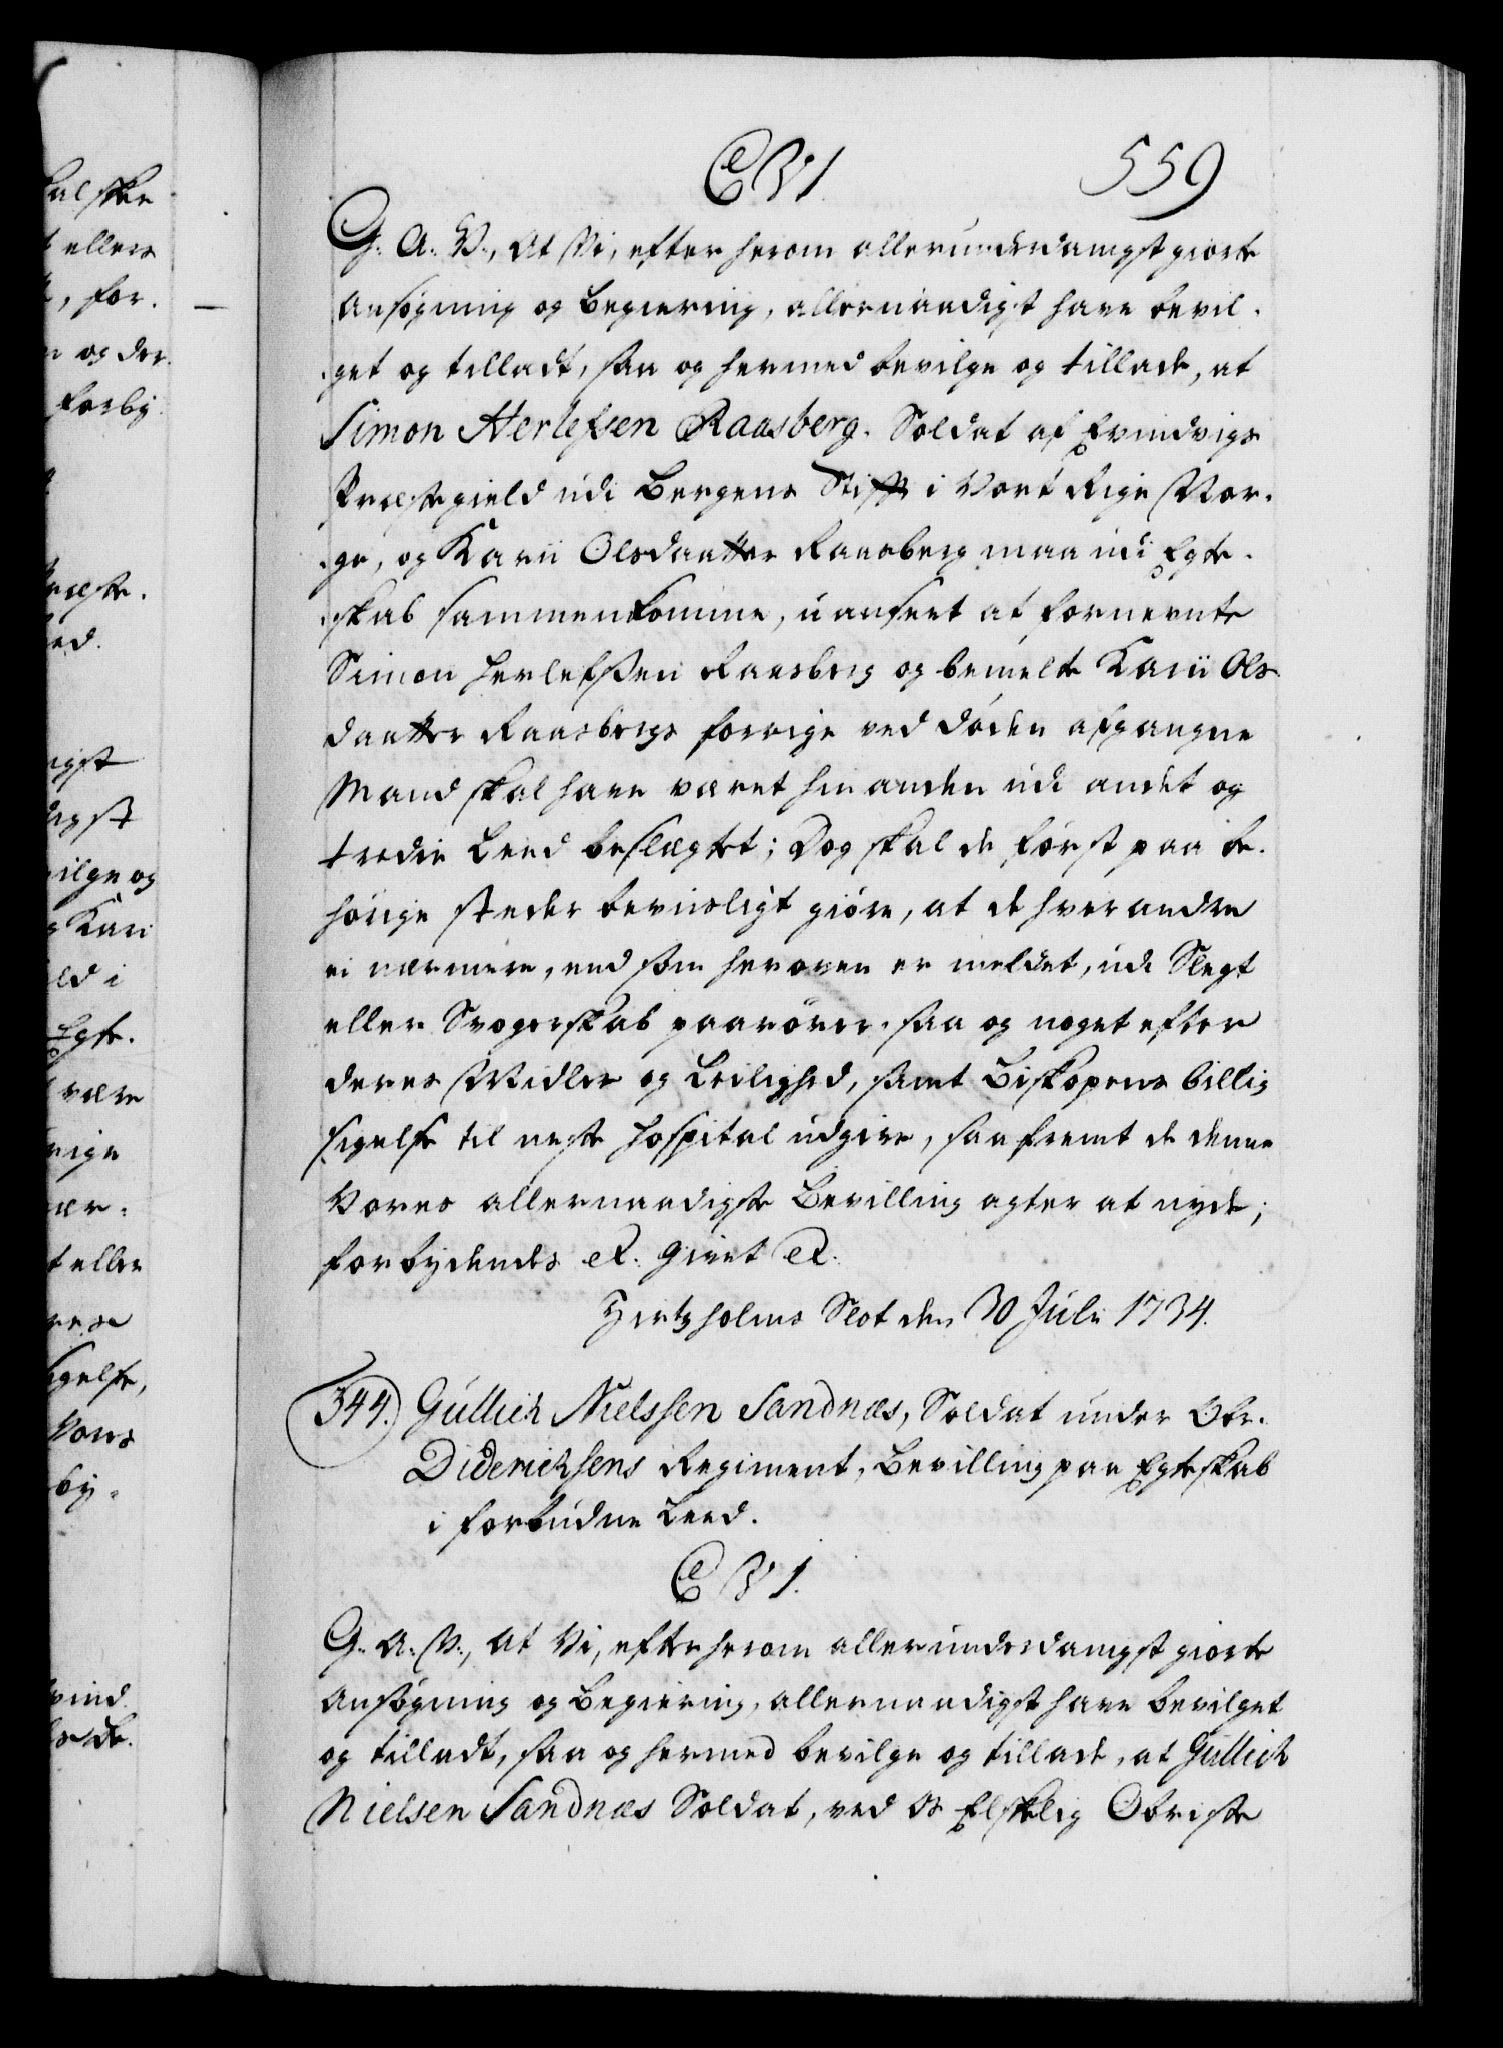 C VI. 559
G. A. V., At Vi, efter herom allerunderdanigst giorte
Ansøgning og Begiering, allernaadigst have bevil-
get og tilladt, saa og hermed bevilge og tillade, at
Simon Herlefsen Raasberg. Soldat af Evindvigs
Præstegield udi Bergens Stift i Vort Rige Nor-
ge, og Karii Olsdaatter Raasberg maa udi Egte-
skab sammenkomme, uanseet at fornevnte
Simon Herlefssen Raasberg og bemelte Karii Ols
daatter Raasbergs forrige ved døden afgangne
Mand skal have været hinanden udi andet og
tredie Leed beslægtet; Dog skal de først paa be-
hørige steder beviisligt giøre, at de hverandre
ei nærmere, end som heroven er meldet, udi Slegt
eller Svogerskab paarører, saa og noget efter
deres Midler og Leilighed, samt Biskopens billig
sigelse til neste Hospital udgive, saafremt de denne
Vores allernaadigste Bevilling agter at nyde;
forbydendes etc. Givet etc.
Hirtzholms Slot den 30 Juli 1734.
344. Gullich Nielssen Sandnæs, Soldat under Obr.
Diderichsens Regiment, Bevilling paa Egteskab
i forbudne Leed.
C VI.
G. A. V., At Vi, efter herom allerunderdanigst giorte
Ansøgning og Begiering, allernaadigst have bevilget
og tilladt, saa og hermed bevilge og tillade, at Gullich
Nielsen Sandnæs Soldat, ved Os Elskelig Obriste